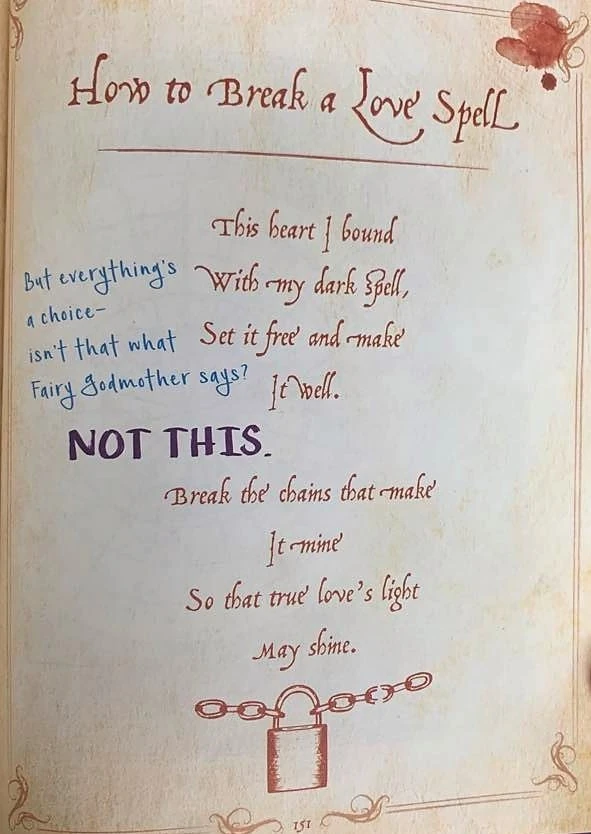 How to Break a Love Spell
This heart I bound
But everything's
a choice-
isn't that what
Fairy Godmother says?
With my dark spell,
Set it free and make
It well.
NOT THIS.
Break the chains that make
It mine
So that true love's light
May shine.
151